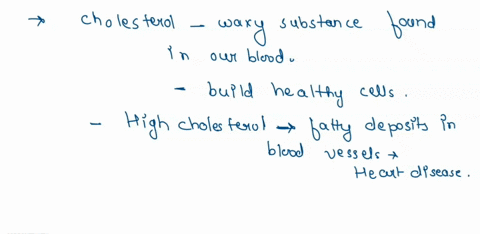 → cholesterol - waxy substance found
in our blood.
- build healthy cells.
- High cholesterol → fatty deposits in
blood vessels →
Heart disease.